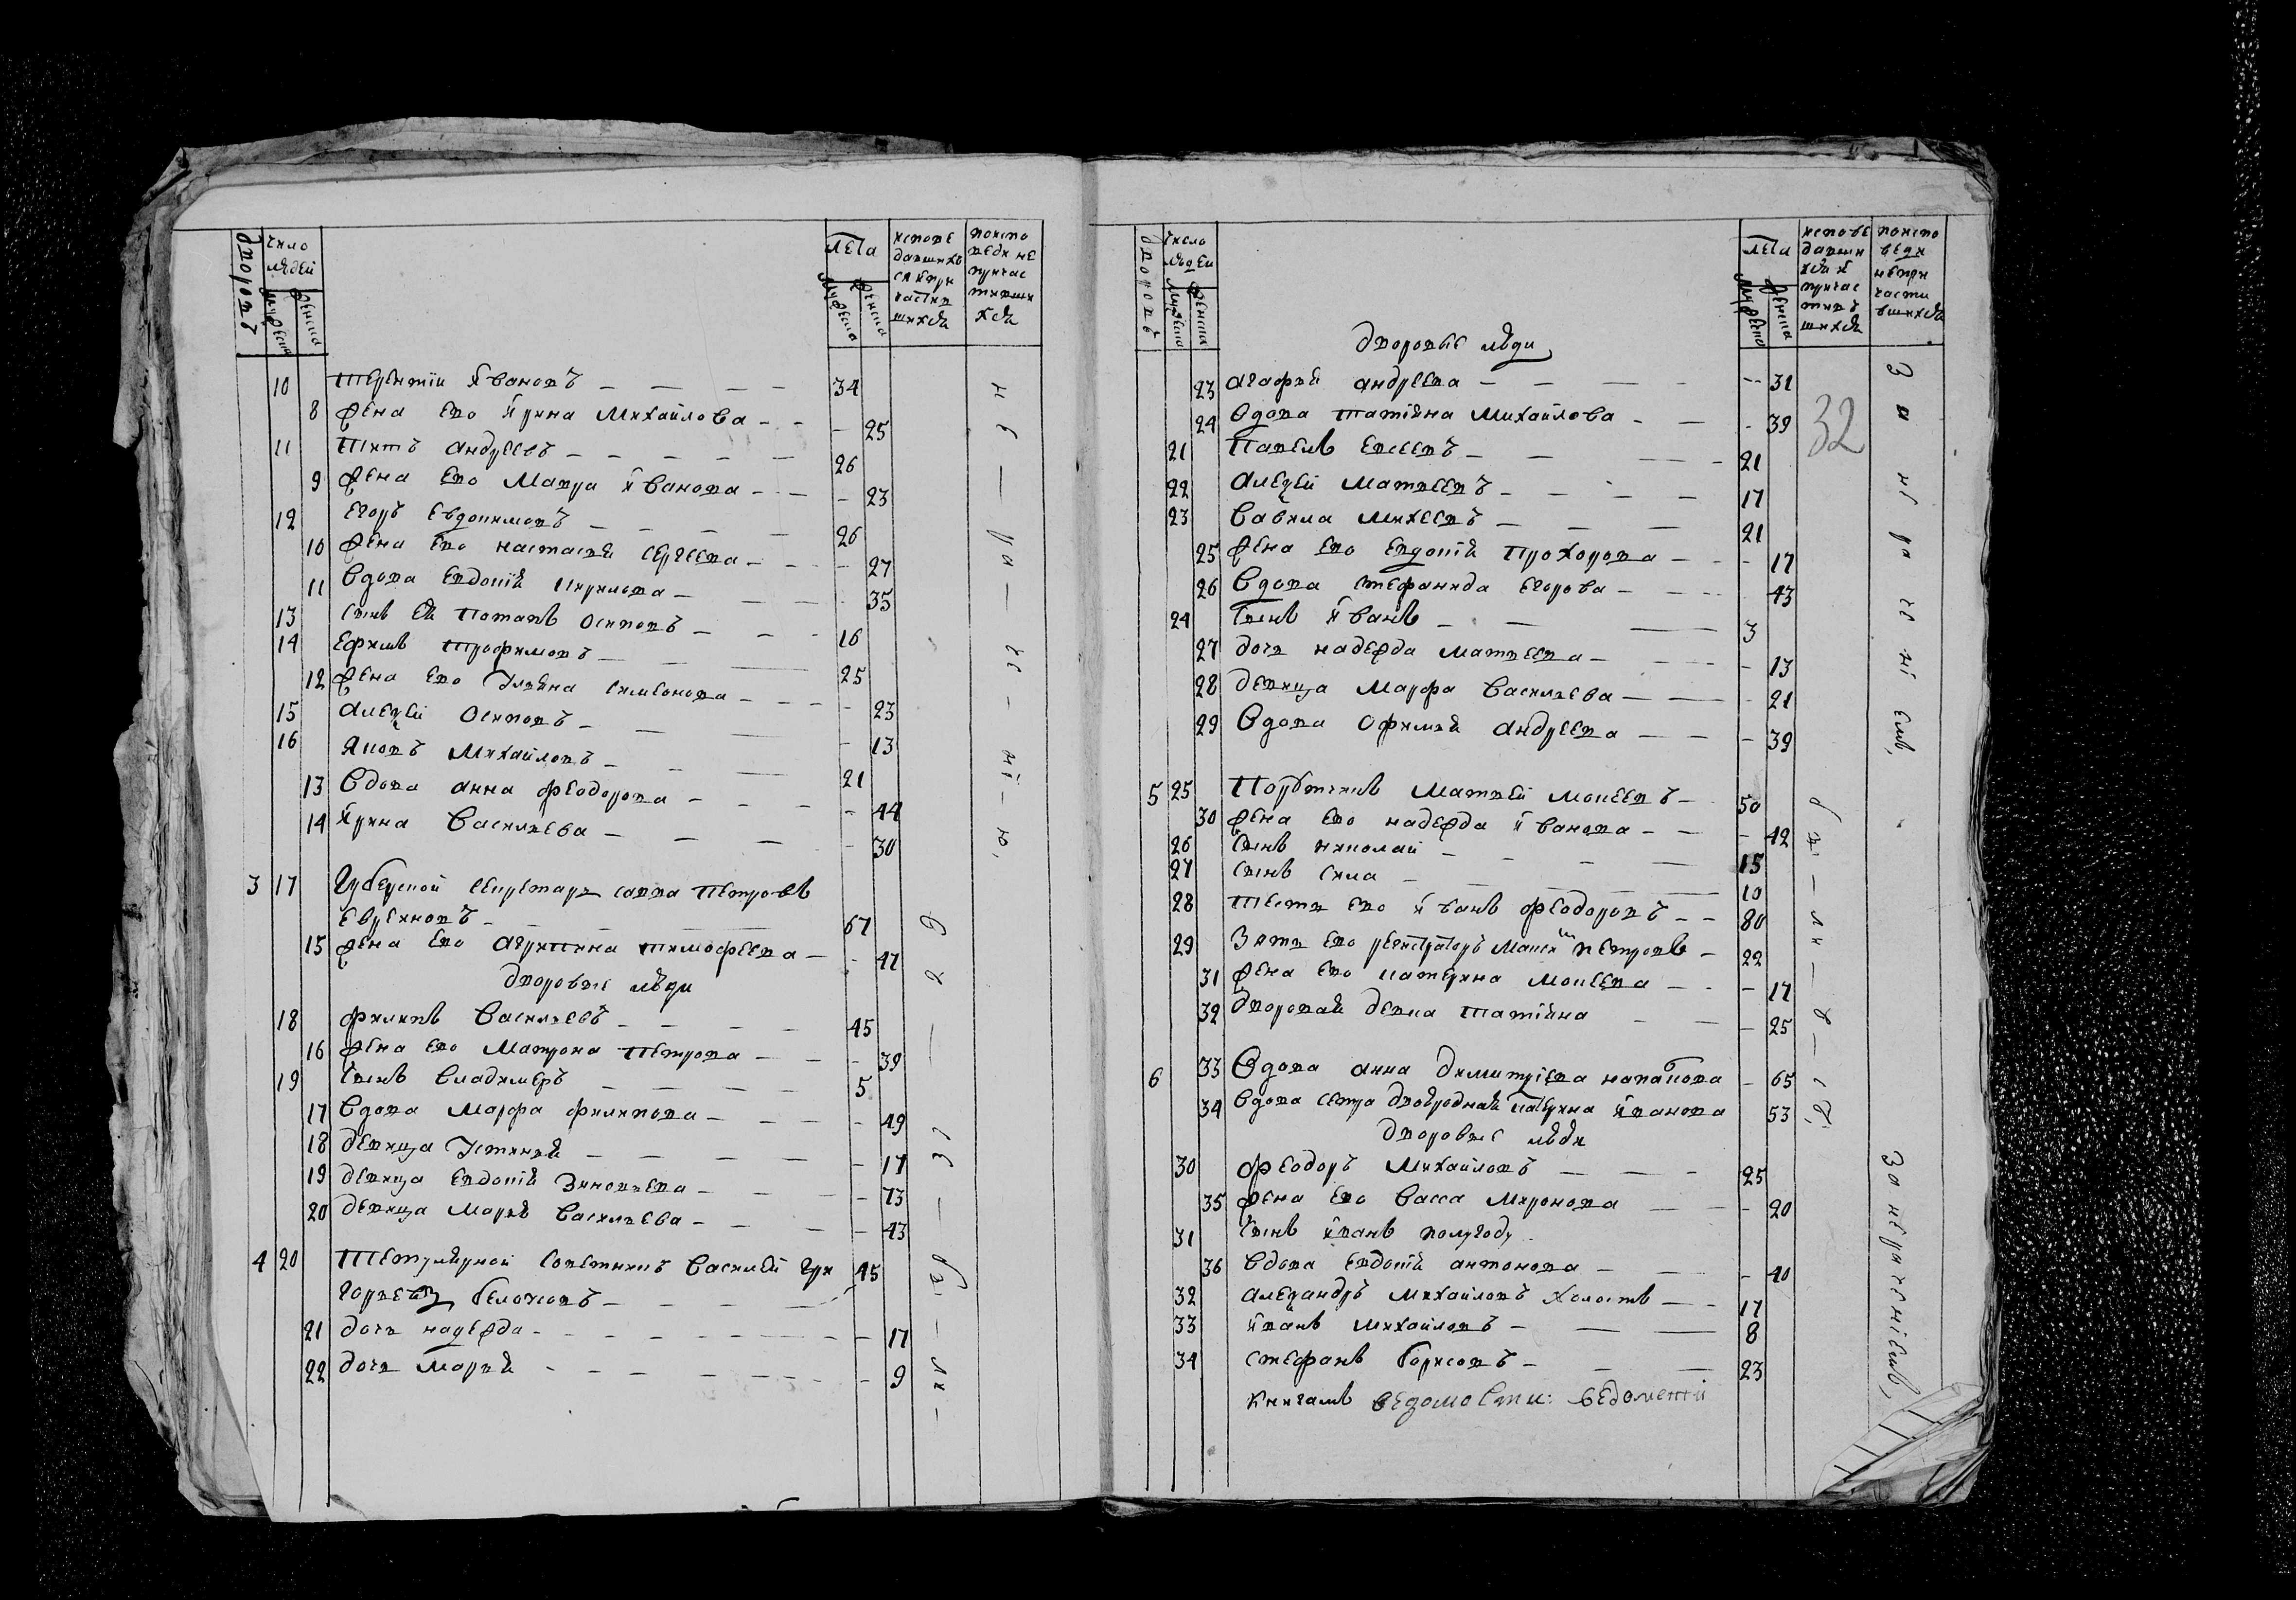 дворовъ
число людей
мужеска
женска
лета
мужеска
женска
исповедавшихся и причастившихся
поисповеди не причастившихся
10 Терентiи Иванов 34
8 Жена ево Ирина Михайлова 25
11 Титъ Андреевъ 26
9 Жена ево Мавра Иванова 23
12 Егоръ Евдокимовъ 26
10 Жена ево Настасия Сергеева 27
11 Вдова Евдокия Кирилова 35
13 Сынъ ея Потапъ Осиповъ 16
14 Ефимъ Трофимовъ 25
12 Жена ево Улияна Симеонова 23
15 Алеѯей Осиповъ 13
16 Яковъ Михайловъ 21
13 Вдова Анна Феодорова 44
14 Ирина Васильева 30
3 17 Губернской секретарь Савва Петровъ
Евреиновъ 67
15 Жена ево Агрипина Тимофеева 47
Дворовые люди
18 Филипъ Васильевъ 45
16 Жена ево Матрона Петрова 39
19 Сынъ Владимеръ 5
17 Вдова Марфа Филипова 49
18 Девица Устиния 17
19 Девица Евдокия Зиновьева 73
20 Девица Мария Васильева 43
4 20 Титулярной советникъ Василей Гри 45
горьевъ
21 Дочь Надежда 17
22 Дочь Мария 9
дворовъ
число людей
мужеска
женска
лета
мужеска
женска
исповедавшихся и причастившихся
поисповеди не причастившихся
Дворовые люди
23 Агафия Андреева 31
32
24 Вдова Татияна Михайлова 39
21 Павелъ Евсеевъ 21
22 Алеѯей Матвеевъ 17
23 Вавила Михеевъ 21
25 Жена ево Евдокия Прохорова 17
26 Вдова Стефанида Егорова 43
24 Сынъ Иванъ 3
27 Дочь Надежда Матвеева 13
28 Девица Марфа Васильева 21
29 Вдова Офимия Андреева 39
за нераченiемъ
5 25 Порутчикъ Матвей Моисеевъ 50
30 Жена ево Надежда Иванова 42
26 Сынъ Николай 15
27 Сынъ Сила 10
28 Тесть ево Иванъ Феодоровъ 80
29 Зять ево регистраторъ Петровъ 22
31 Жена ево Катерина Моисеева 17
32 Дворовая девка Татияна 25
6 33 Вдова Анна Димитриева 65
34 Вдова сестра двоюродная Катерина Иванова 53
Дворовые люди
30 Феодоръ Михайловъ 25
35 Жена ево Васса Миронова 20
31 Сынъ Иванъ полугоду
36 Вдова Евдокия Антонова 40
32 Алеѯандръ Михайловъ холостъ 17
33 Иванъ Михайловъ 8
34 Стефанъ Борисовъ 23
за нераченiемъ
Книгамъ ведомости: